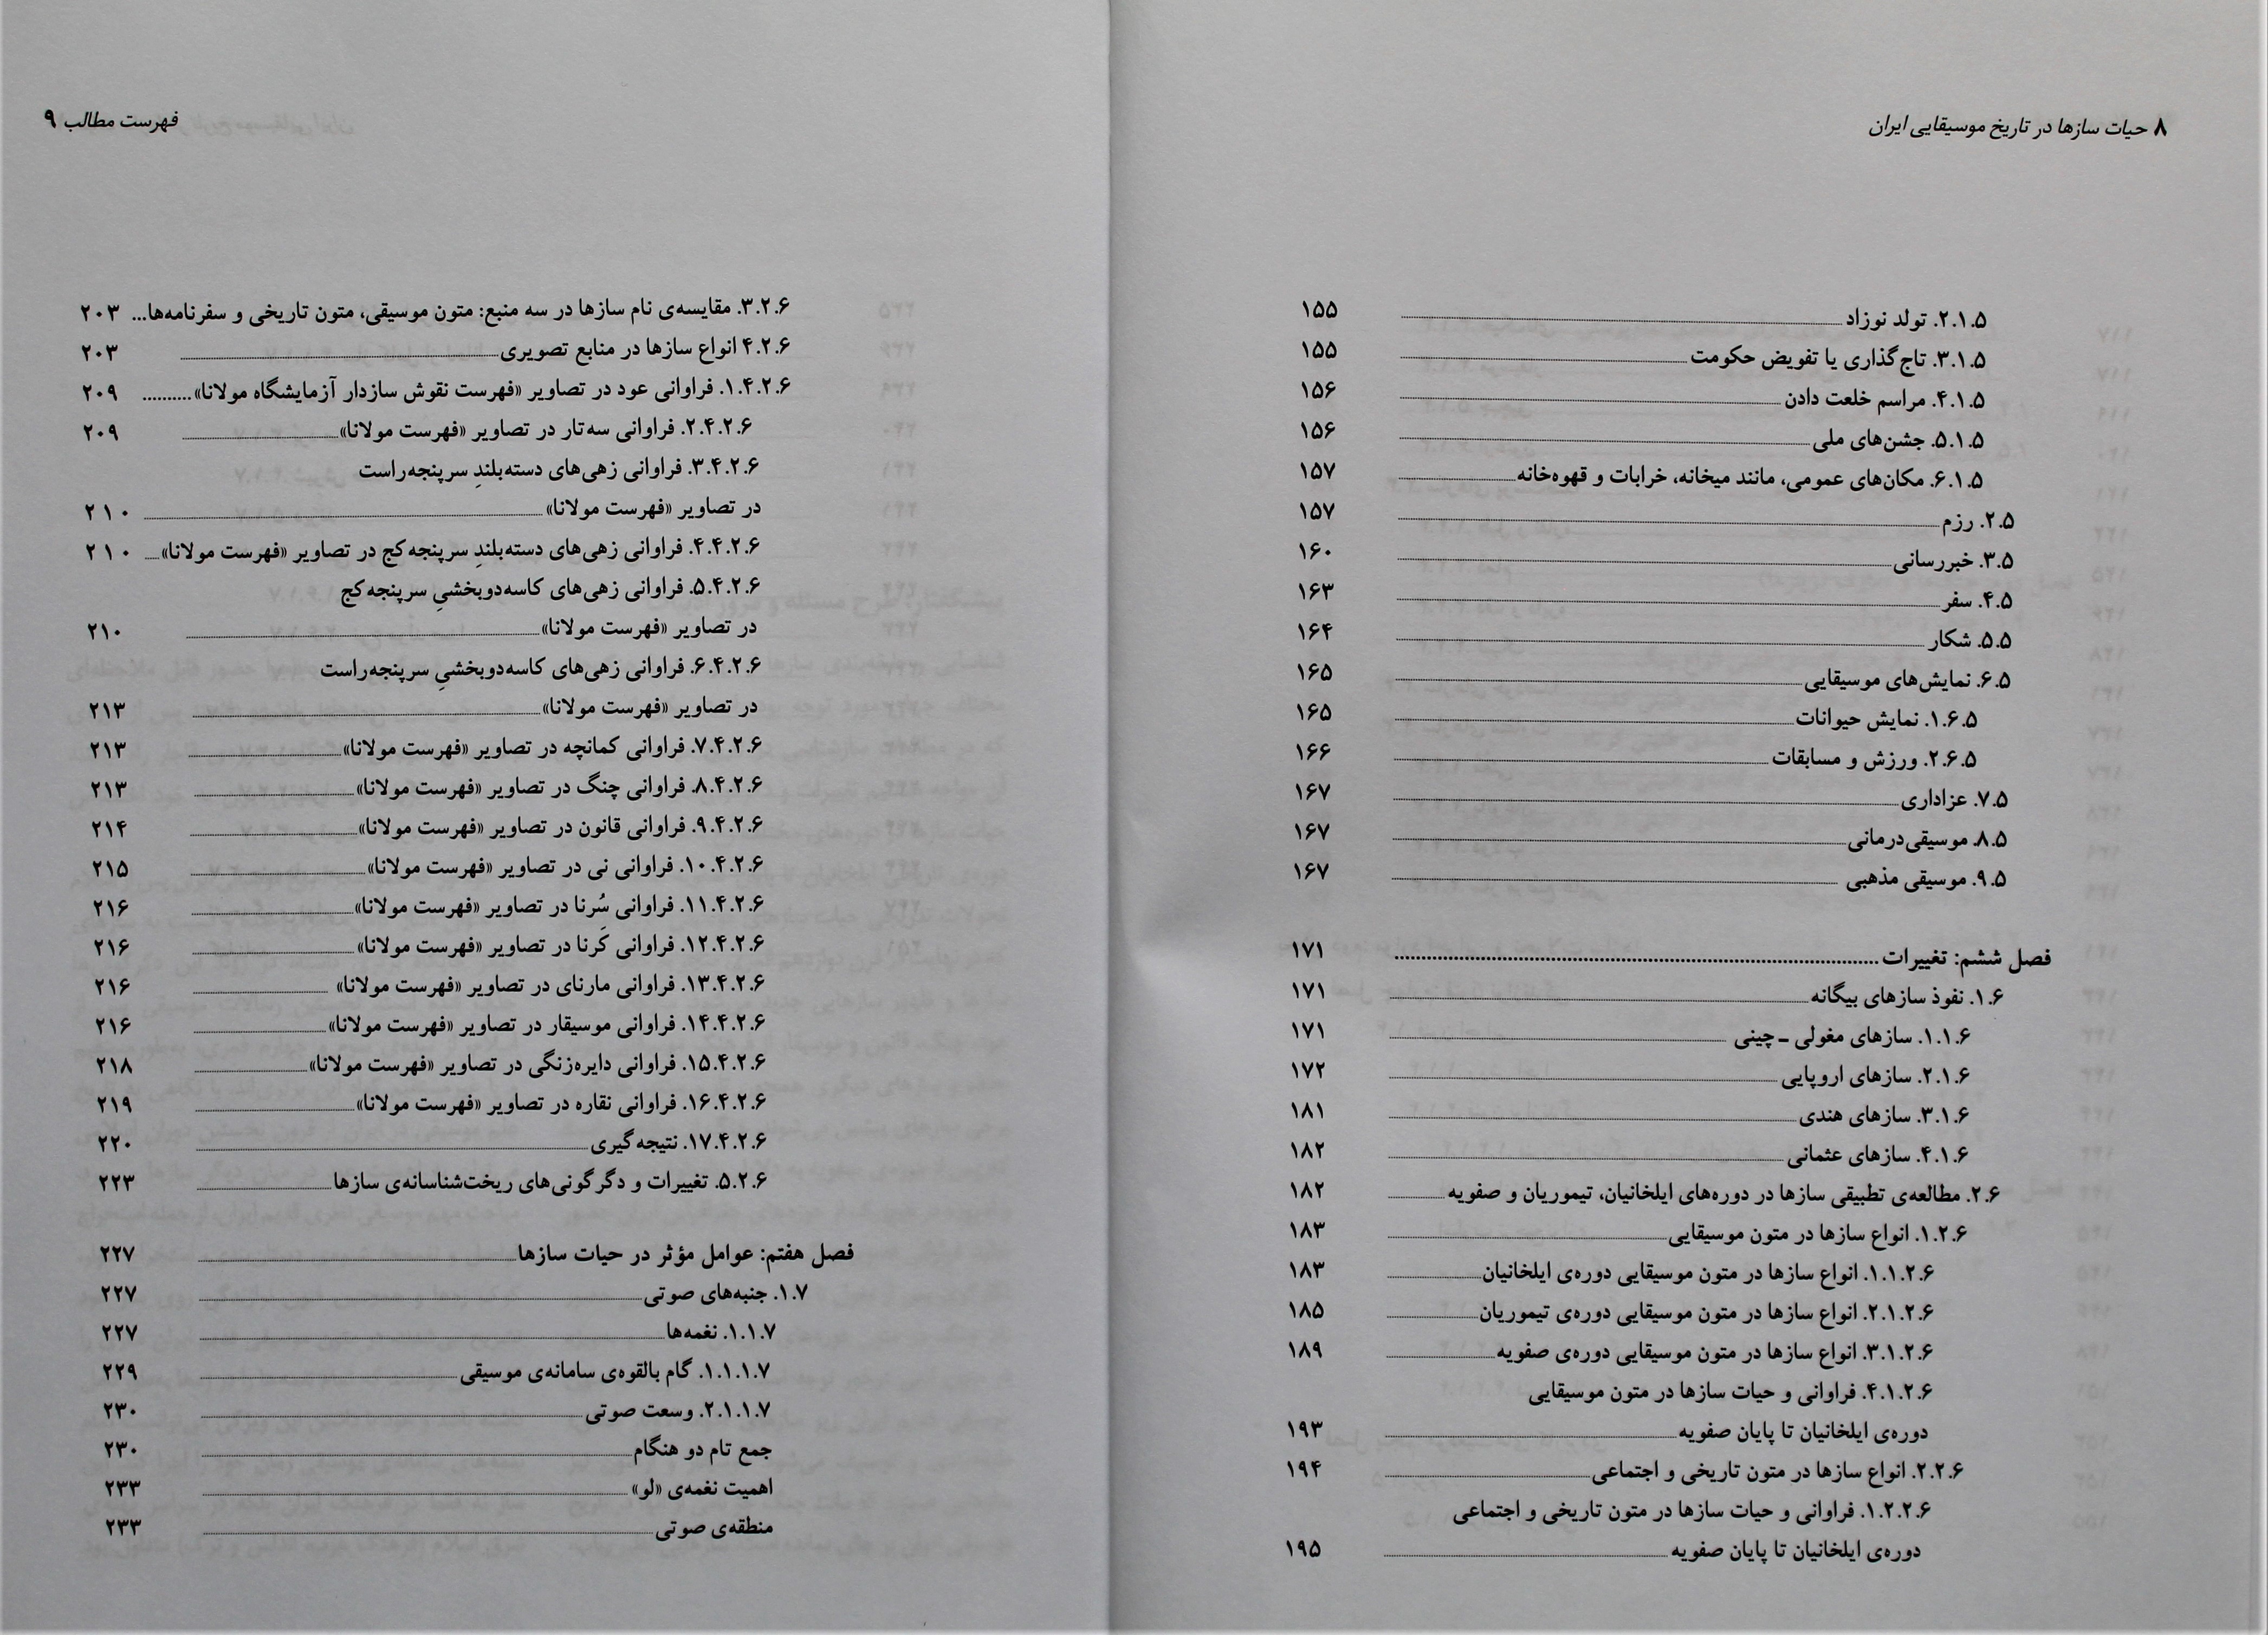 ۸ حیات سازها در تاریخ موسیقایی ایران
۲.۱.۵. تولد نوزاد ۱۵۵
۳.۱.۵. تاج‌گذاری یا تفویض حکومت ۱۵۵
۴.۱.۵. مراسم خلعت دادن ۱۵۶
۵.۱.۵. جشن‌های ملی ۱۵۶
۶.۱.۵. مکان‌های عمومی، مانند میخانه، خرابات و قهوه‌خانه ۱۵۷
۲.۵. رزم ۱۵۷
۳.۵. خبررسانی ۱۶۰
۴.۵. سفر ۱۶۳
۵.۵. شکار ۱۶۴
۶.۵. نمایش‌های موسیقایی ۱۶۵
۱.۶.۵. نمایش حیوانات ۱۶۵
۲.۶.۵. ورزش و مسابقات ۱۶۶
۷.۵. عزاداری ۱۶۷
۸.۵. موسیقی‌درمانی ۱۶۷
۹.۵. موسیقی مذهبی ۱۶۷
فصل ششم: تغییرات ۱۷۱
۱.۶. نفوذ سازهای بیگانه ۱۷۱
۱.۱.۶. سازهای مغولی ـ چینی ۱۷۱
۲.۱.۶. سازهای اروپایی ۱۷۲
۳.۱.۶. سازهای هندی ۱۸۱
۴.۱.۶. سازهای عثمانی ۱۸۲
۲.۶. مطالعه‌ی تطبیقی سازها در دوره‌های ایلخانیان، تیموریان و صفویه ۱۸۲
۱.۲.۶. انواع سازها در متون موسیقایی ۱۸۳
۱.۱.۲.۶. انواع سازها در متون موسیقایی دوره‌ی ایلخانیان ۱۸۳
۲.۱.۲.۶. انواع سازها در متون موسیقایی دوره‌ی تیموریان ۱۸۵
۳.۱.۲.۶. انواع سازها در متون موسیقایی دوره‌ی صفویه ۱۸۹
۴.۱.۲.۶. فراوانی و حیات سازها در متون موسیقایی
دوره‌ی ایلخانیان تا پایان صفویه ۱۹۳
۲.۲.۶. انواع سازها در متون تاریخی و اجتماعی ۱۹۴
۱.۲.۲.۶. فراوانی و حیات سازها در متون تاریخی و اجتماعی
دوره‌ی ایلخانیان تا پایان صفویه ۱۹۵
فهرست مطالب ۹
۳.۲.۶. مقایسه‌ی نام سازها در سه منبع: متون موسیقی، متون تاریخی و سفرنامه‌ها... ۲۰۳
۴.۲.۶ انواع سازها در منابع تصویری ۲۰۳
۱.۴.۲.۶. فراوانی عود در تصاویر «فهرست نقوش سازدار آزمایشگاه مولانا» ۲۰۹
۲.۴.۲.۶. فراوانی سه‌تار در تصاویر «فهرست مولانا» ۲۰۹
۳.۴.۲.۶. فراوانی زهی‌های دسته‌بلندِ سرپنجه‌راست
در تصاویر «فهرست مولانا» ۲۱۰
۴.۴.۲.۶. فراوانی زهی‌های دسته‌بلندِ سرپنجه‌کج در تصاویر «فهرست مولانا» ۲۱۰
۵.۴.۲.۶. فراوانی زهی‌های کاسه‌دوبخشیِ سرپنجه‌کج
در تصاویر «فهرست مولانا» ۲۱۰
۶.۴.۲.۶. فراوانی زهی‌های کاسه‌دوبخشیِ سرپنجه‌راست
در تصاویر «فهرست مولانا» ۲۱۳
۷.۴.۲.۶. فراوانی کمانچه در تصاویر «فهرست مولانا» ۲۱۳
۸.۴.۲.۶. فراوانی چنگ در تصاویر «فهرست مولانا» ۲۱۳
۹.۴.۲.۶. فراوانی قانون در تصاویر «فهرست مولانا» ۲۱۴
۱۰.۴.۲.۶. فراوانی نی در تصاویر «فهرست مولانا» ۲۱۵
۱۱.۴.۲.۶. فراوانی سُرنا در تصاویر «فهرست مولانا» ۲۱۶
۱۲.۴.۲.۶. فراوانی کَرنا در تصاویر «فهرست مولانا» ۲۱۶
۱۳.۴.۲.۶. فراوانی مارنای در تصاویر «فهرست مولانا» ۲۱۶
۱۴.۴.۲.۶. فراوانی موسیقار در تصاویر «فهرست مولانا» ۲۱۶
۱۵.۴.۲.۶. فراوانی دایره‌زنگی در تصاویر «فهرست مولانا» ۲۱۸
۱۶.۴.۲.۶. فراوانی نقاره در تصاویر «فهرست مولانا» ۲۱۹
۱۷.۴.۲.۶. نتیجه‌گیری ۲۲۰
۵.۲.۶. تغییرات و دگرگونی‌های ریخت‌شناسانه‌ی سازها ۲۲۳
فصل هفتم: عوامل مؤثر در حیات سازها ۲۲۷
۱.۷. جنبه‌های صوتی ۲۲۷
۱.۱.۷. نغمه‌ها ۲۲۷
۱.۱.۱.۷. گام بالقوه‌ی سامانه‌ی موسیقی ۲۲۹
۲.۱.۱.۷. وسعت صوتی ۲۳۰
جمع تام دو هنگام ۲۳۰
اهمیت نغمه‌ی «لو» ۲۳۳
منطقه‌ی صوتی ۲۳۳